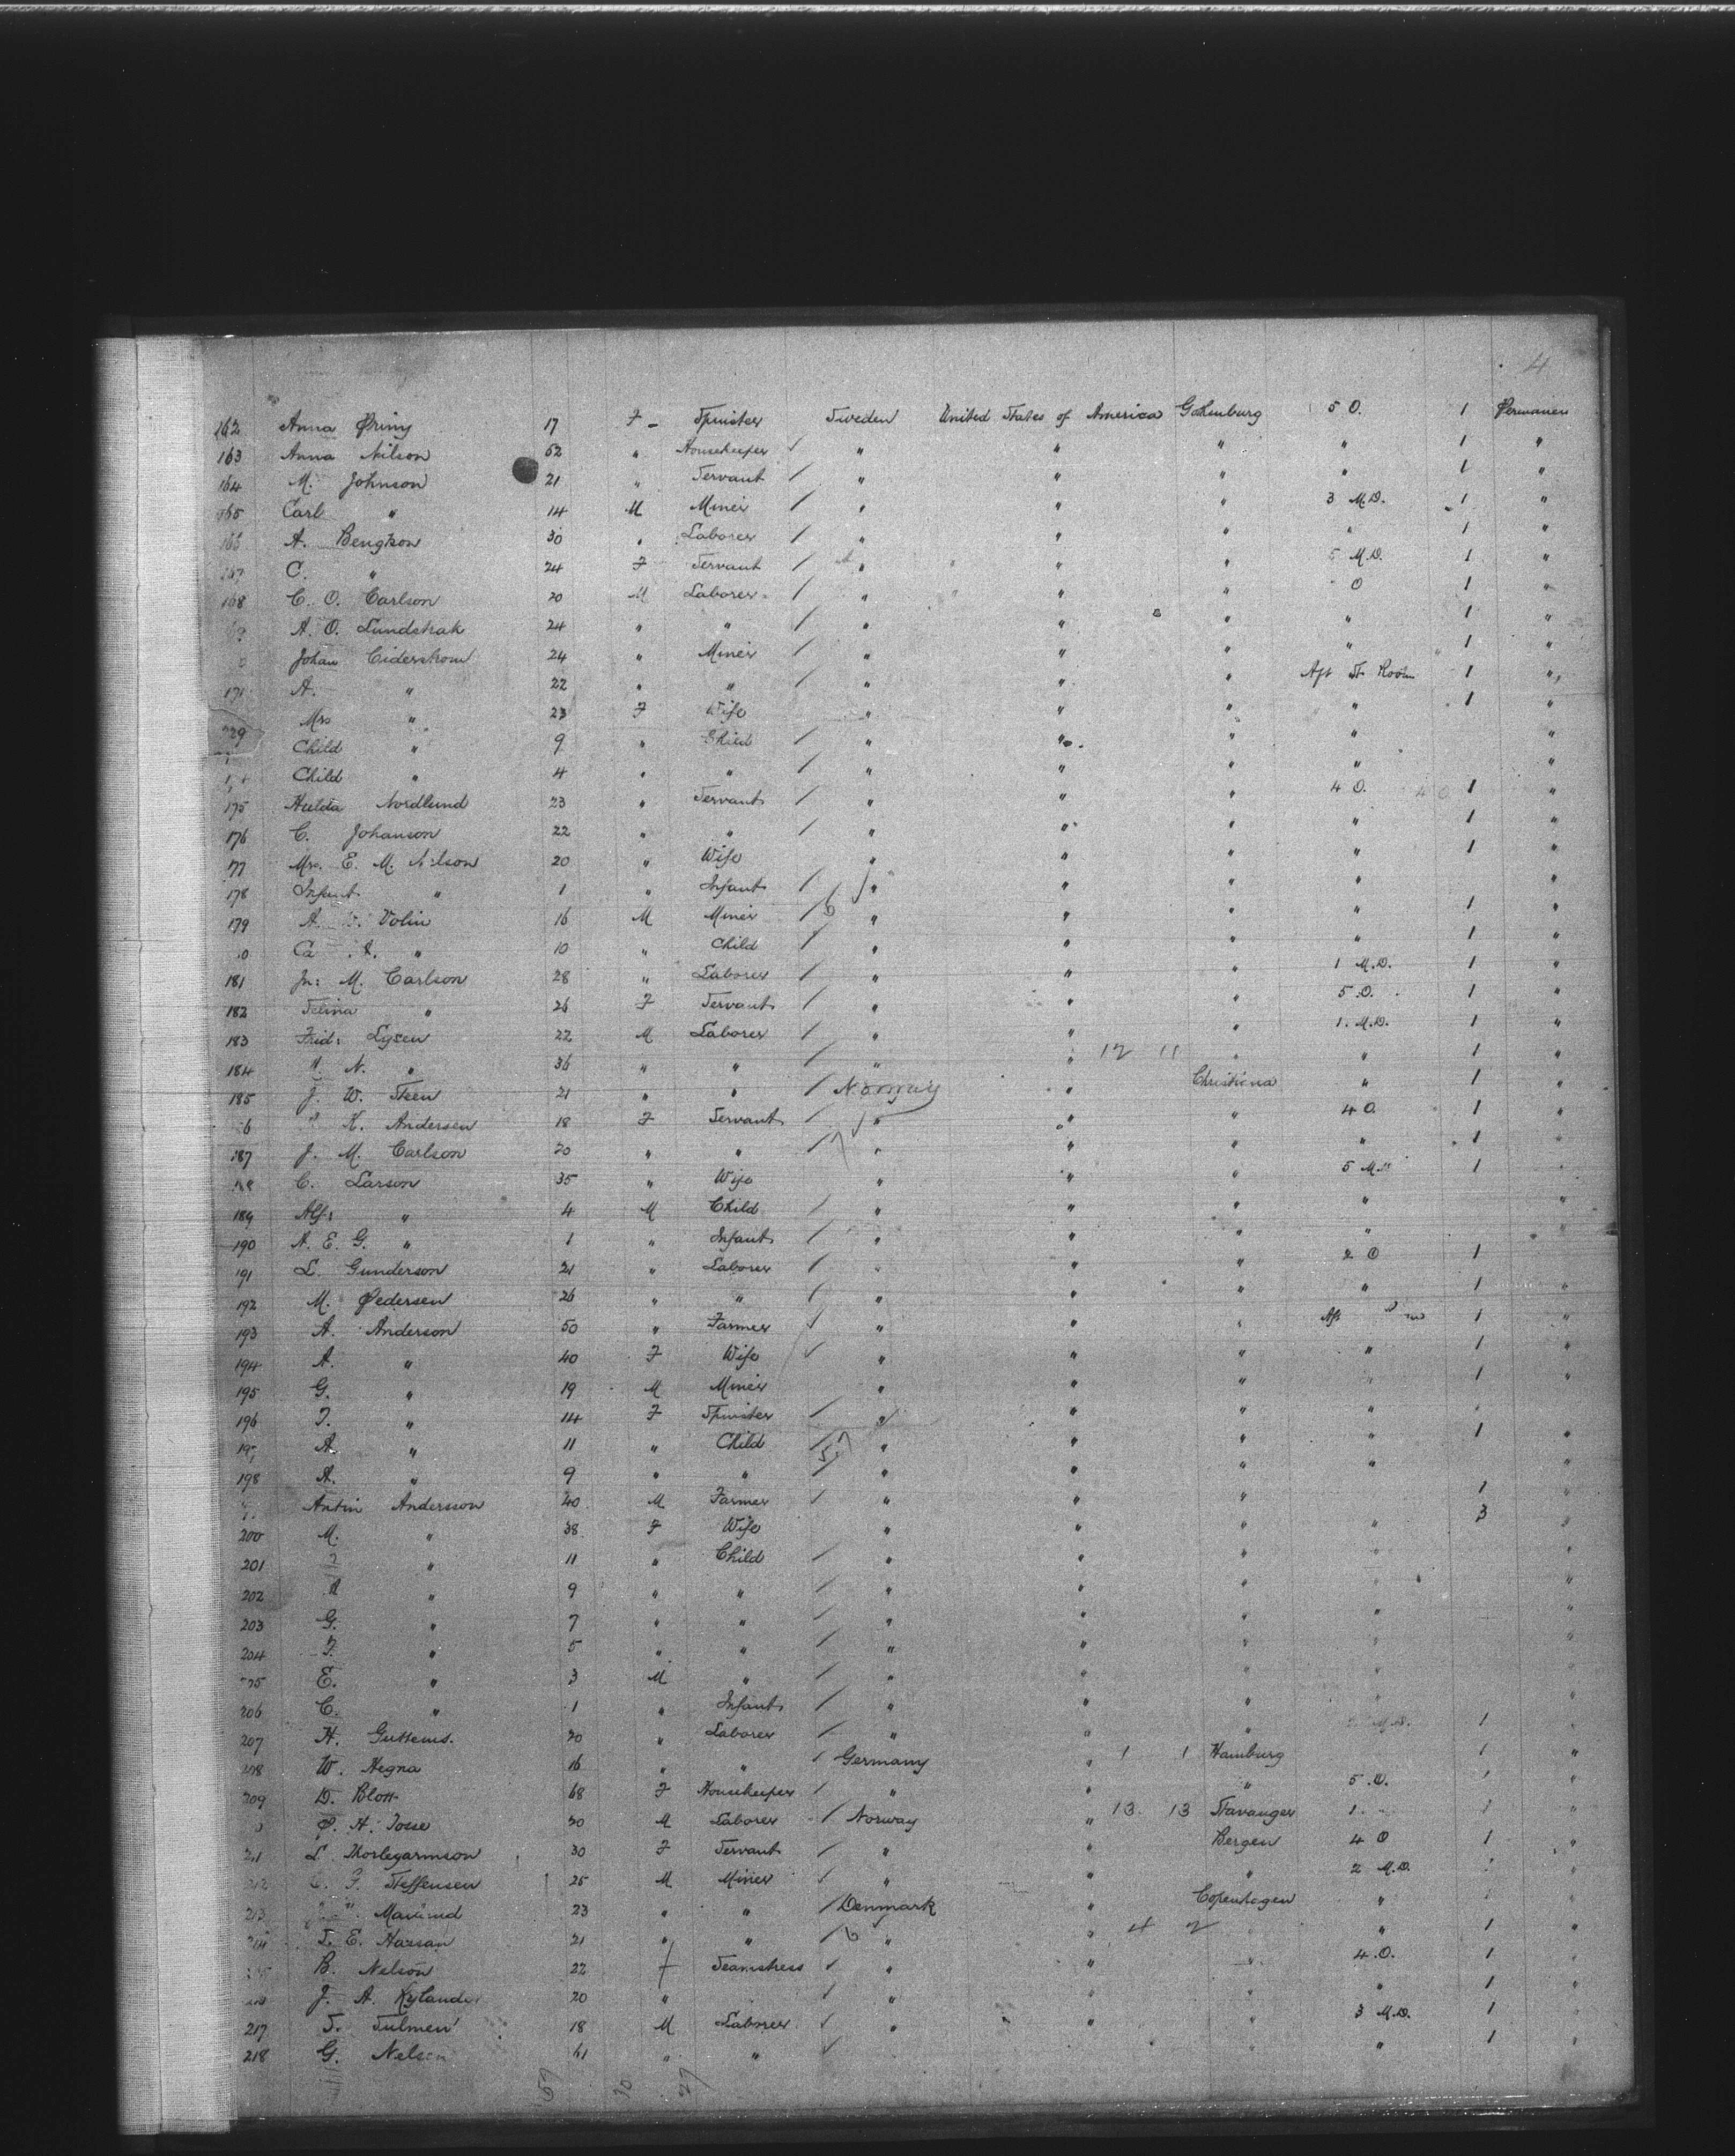 4
162 Anna Priny 17 F - Spinster Sweden United States of America Gothenburg 5 O. 1 Permanen
163 Anna Nilson 52 " Housekeeper " " " " 1 "
164 M. Johnson 21 " Servant " " " " 1 "
165 Carl " 14 M Miner " " " 3 M.D. 1 "
A. Bengtson 30 " Laborer " " " " 1 "
C. " 24 F Servant " " " 5 M.D. 1 "
168 C. O. Carlson 20 M Laborer " " " O 1 "
A. O. Lundstrak 24 " " " " " " 1 "
Johan Ciderstrom 24 " Miner " " " " 1 "
171 A. " 22 " " " " " Aft St. Room 1 "
Mrs " 23 F Wife " " " " 1 "
Child " 9 " Child " " " " "
Child " 4 " " " " " " "
175 Hulda Nordlund 23 " Servant " " " 4 O. 1 "
176 C. Johanson 22 " " " " " " 1 "
177 Mrs. E. M. Nilson 20 " Wife " " " " 1 "
178 Infant " 1 " Infant " " " " "
179 A. Volin 16 M Miner 6 " " " " 1 "
Ca " 10 " Child " " " " 1 "
181 Jn: M. Carlson 28 " Laborer " " " 1 M.D. 1 "
182 Selina " 26 F Servant " " " 5 O. 1 "
183 Frid: Lysen 22 M Laborer " " " 1. M.D. 1 "
184 N. " 36 " " " " 12 11 " " 1 "
185 J. W. Steen 21 " " Norway " Christiana " 1 "
K. Andersen 18 F Servant " " " 4 O. 1 "
187 J. M. Carlson 20 " " " " " " 1 "
C. Larson 35 " Wife " " " 5 M.D. 1
189 Alf: " 4 M Child " " " " "
190 A. E. G. " 1 " Infant " " " " "
191 L. Gunderson 21 " Laborer " " " 2 O 1
192 M. Pedersen 26 " " " " " " 1 "
193 A. Anderson 50 " Farmer " " " Aft 1 "
194 A. " 40 F Wife " " " " 1 "
195 G. " 19 M Miner " " " " 1 "
196 T. " 14 F Spinster " " " "
A. " 11 " Child " " " " 1 "
198 A. " 9 " " " " " " "
Antin Andersson 40 M Farmer " " " 1 "
200 M. " 38 F Wife " " " " 3 "
201 " 11 " Child " " " " "
202 " 9 " " " " " " "
203 G. " 7 " " " " " " "
204 F. " 5 " " " " " " "
E. " 3 M " " " " " "
206 C. " 1 " Infant " " " " "
207 H. Guttems. 20 " Laborer " " " M.D. 1
208 W. Hegna 16 " " Germany " 1 1 Hamburg 1 "
209 D. Blott 68 F Housekeeper " " " 5 O. "
P. H. Tosse 20 M Laborer Norway " 13 13 Stavanger 1 "
211 L. Thorlegarmson 30 F Servant " " Bergen 4 O 1 "
212 F. Steffensen 25 M Miner " " " 2 M.D. "
213 23 " " Denmark " Copenhagen "
S. E. Hassan 21 " " 6 " " 4 2 " 1 "
B. Nelson 22 f Seamstress " " " 4.O. 1 "
J. A. Kylander 20 " " " " " 1 "
217 S. Sulmen 18 M Laborer " " " 3 M.D. 1 "
218 G. Nelson 41 " " " 1
59 30 29